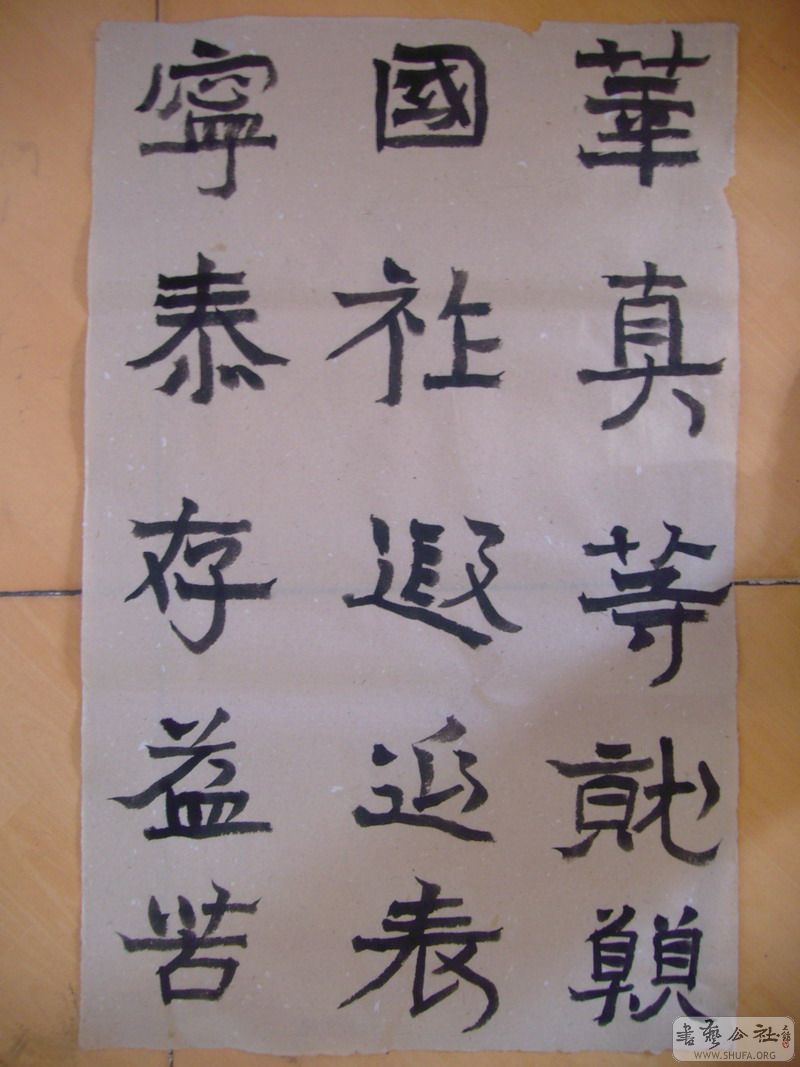 華真等就
國祚遐延表
寧泰存益苦
書藝公社
WWW.SHUFA.ORG